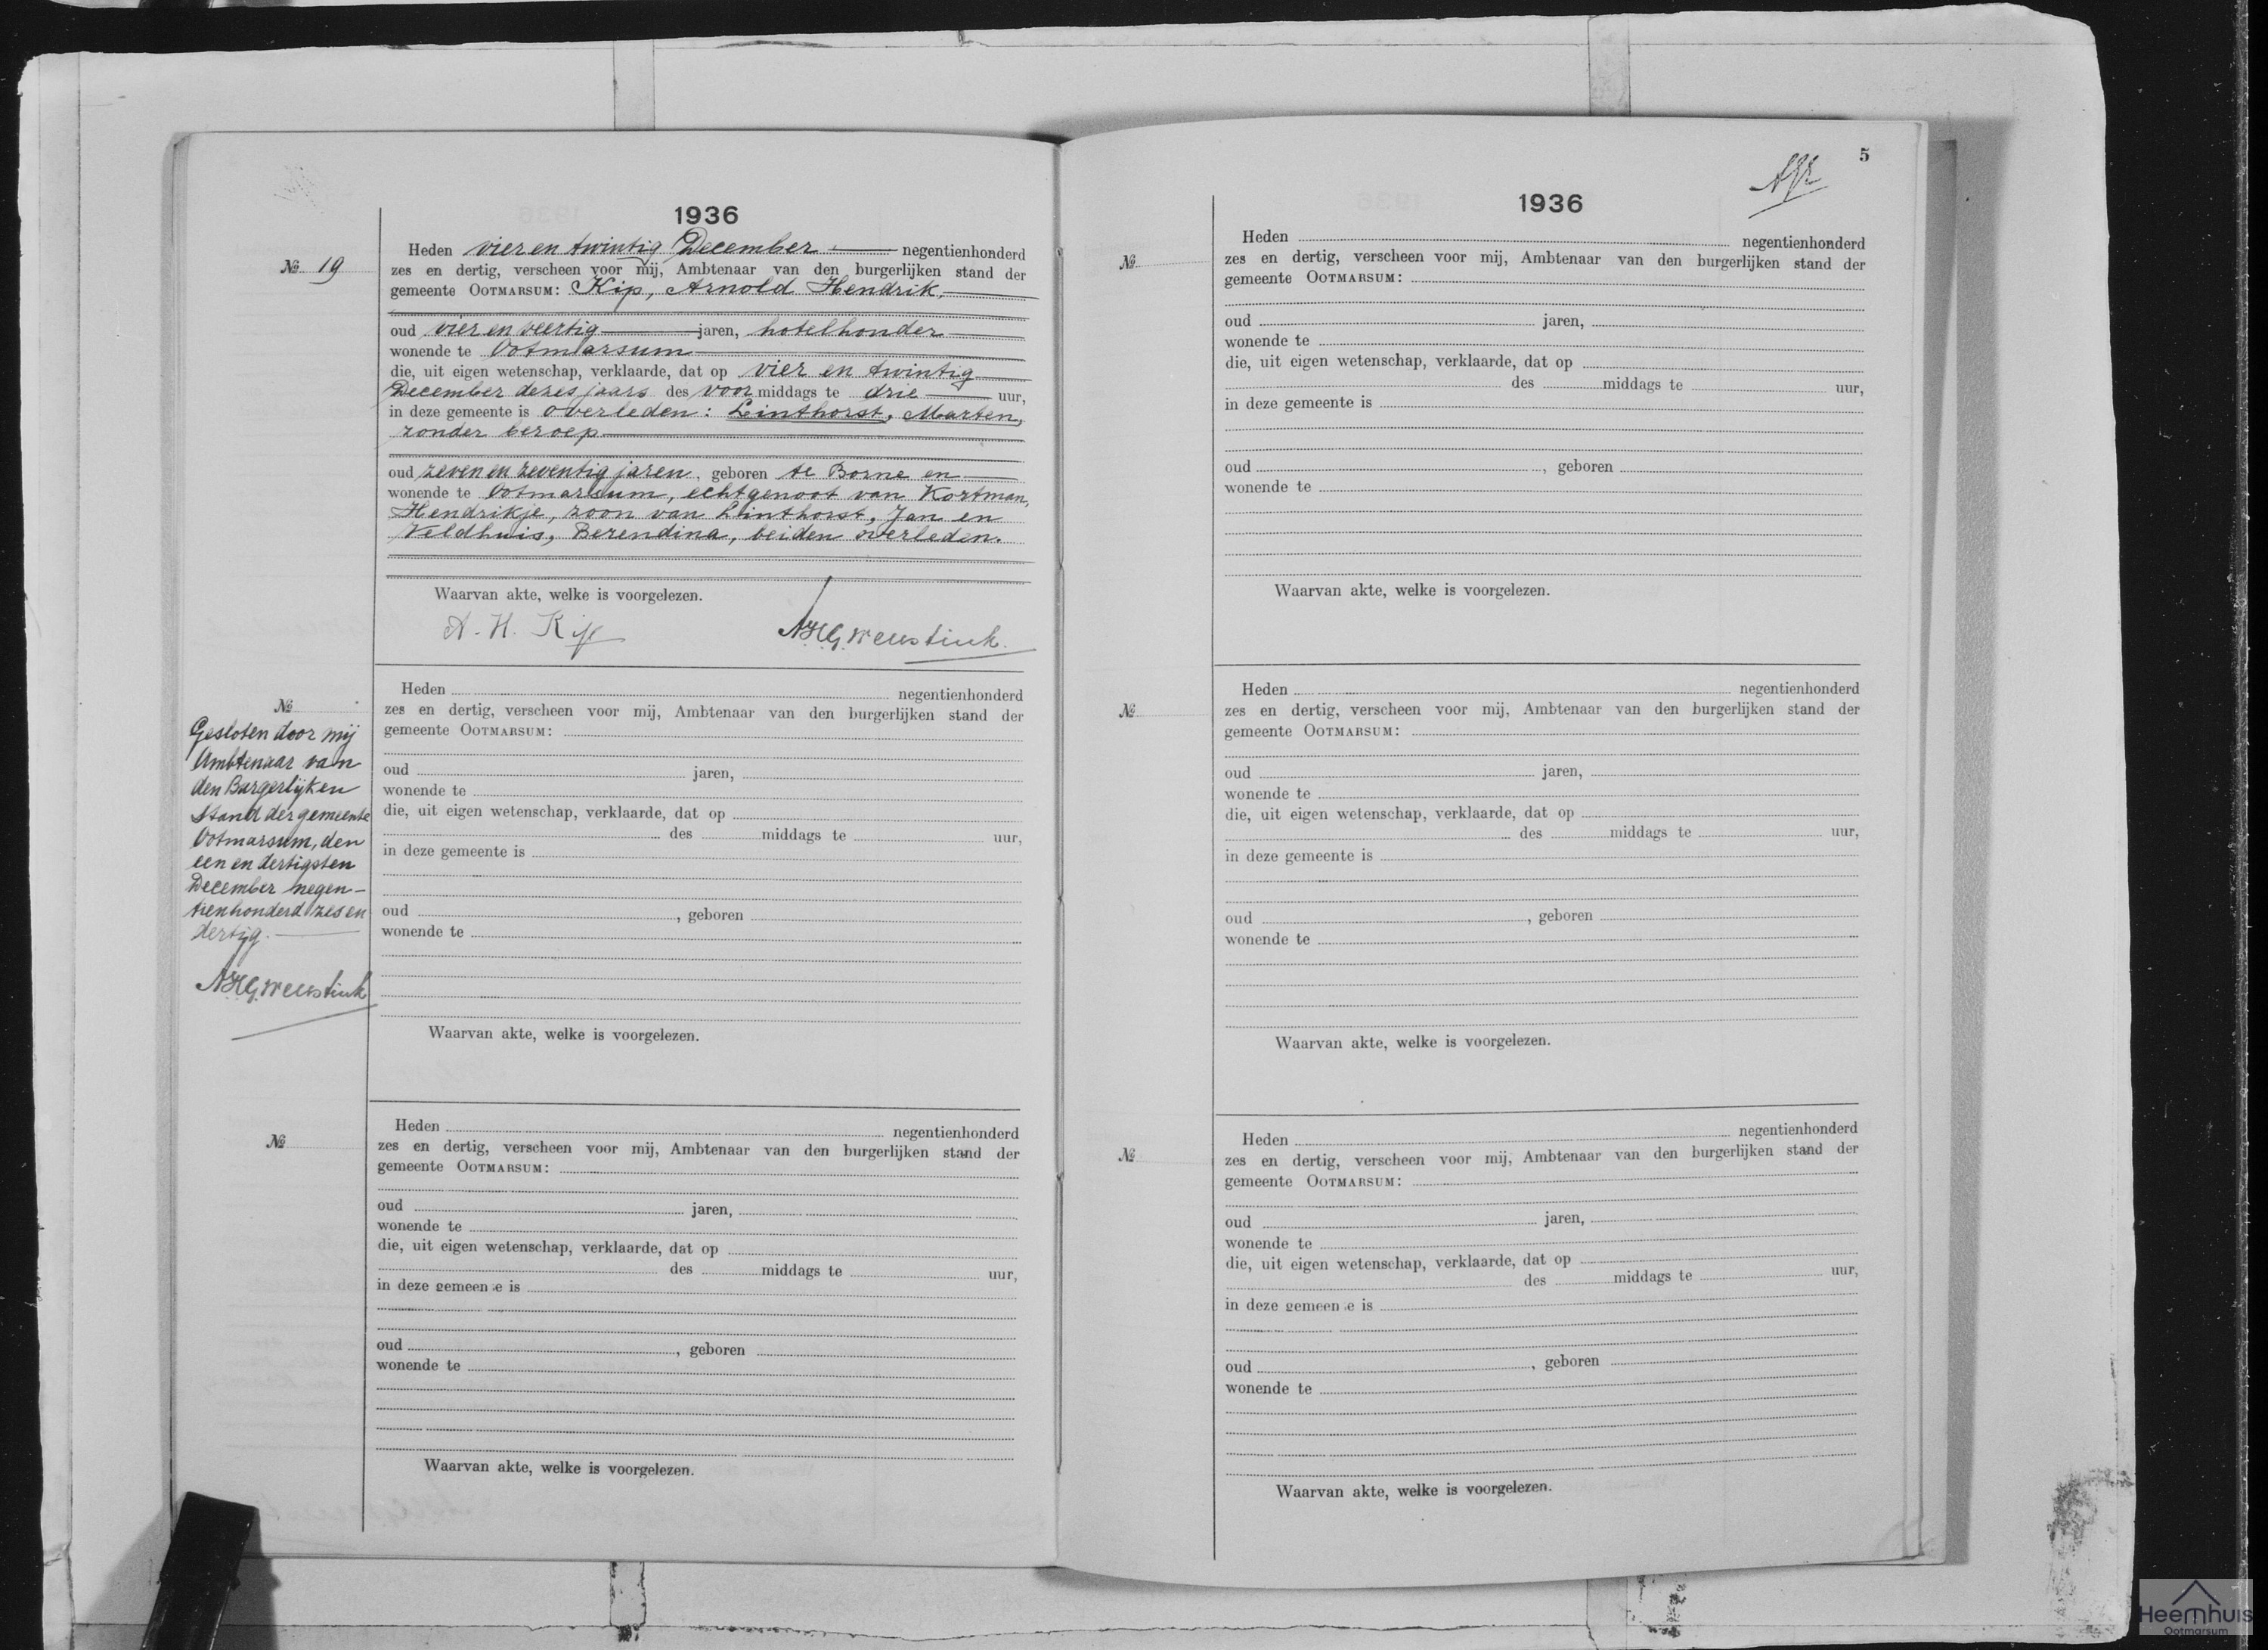 1936
№ 19
Heden vier en twintig December negentienhonderd
zes en dertig, verscheen voor mij, Ambtenaar van den burgerlijken stand der
gemeente OOTMARSUM: Kip, Arnold Hendrik,
oud vier en veertig jaren, hotelhouder
wonende te Ootmarsum
die, uit eigen wetenschap, verklaarde, dat op vier en twintig
December dezes jaars des voor middags te drie uur,
in deze gemeente is overleden: Leinthorst, Marten,
zonder beroep
oud zeven en zeventig jaren, geboren te Borne en
wonende te Ootmarsum, echtgenoot van Kortman,
Hendrikje, zoon van Leinthorst, Jan en
Veldhuis, Berendina, beiden overleden.
Waarvan akte, welke is voorgelezen.
A. H. Kip
№
Gesloten door mij
Ambtenaar van
den Burgerlijken
Stand der gemeente
Ootmarsum, den
een en dertigsten
December negen-
tienhonderd zes en
dertig.
Heden negentienhonderd
zes en dertig, verscheen voor mij, Ambtenaar van den burgerlijken stand der
gemeente OOTMARSUM:
oud jaren,
wonende te
die, uit eigen wetenschap, verklaarde, dat op
des middags te uur,
in deze gemeente is
oud , geboren
wonende te
Waarvan akte, welke is voorgelezen.
№
Heden negentienhonderd
zes en dertig, verscheen voor mij, Ambtenaar van den burgerlijken stand der
gemeente OOTMARSUM:
oud jaren,
wonende te
die, uit eigen wetenschap, verklaarde, dat op
des middags te uur,
in deze gemeen e is
oud , geboren
wonende te
Waarvan akte, welke is voorgelezen.
5
1936
№
Heden negentienhonderd
zes en dertig, verscheen voor mij, Ambtenaar van den burgerlijken stand der
gemeente OOTMARSUM:
oud jaren,
wonende te
die, uit eigen wetenschap, verklaarde, dat op
des middags te uur,
in deze gemeente is
oud , geboren
wonende te
Waarvan akte, welke is voorgelezen.
№
Heden negentienhonderd
zes en dertig, verscheen voor mij, Ambtenaar van den burgerlijken stand der
gemeente OOTMARSUM:
oud jaren,
wonende te
die, uit eigen wetenschap, verklaarde, dat op
des middags te uur,
in deze gemeente is
oud , geboren
wonende te
Waarvan akte, welke is voorgelezen.
№
Heden negentienhonderd
zes en dertig, verscheen voor mij, Ambtenaar van den burgerlijken stand der
gemeente OOTMARSUM:
oud jaren,
wonende te
die, uit eigen wetenschap, verklaarde, dat op
des middags te uur,
in deze gemeen e is
oud , geboren
wonende te
Waarvan akte, welke is voorgelezen.
Heemhuis
Ootmarsum